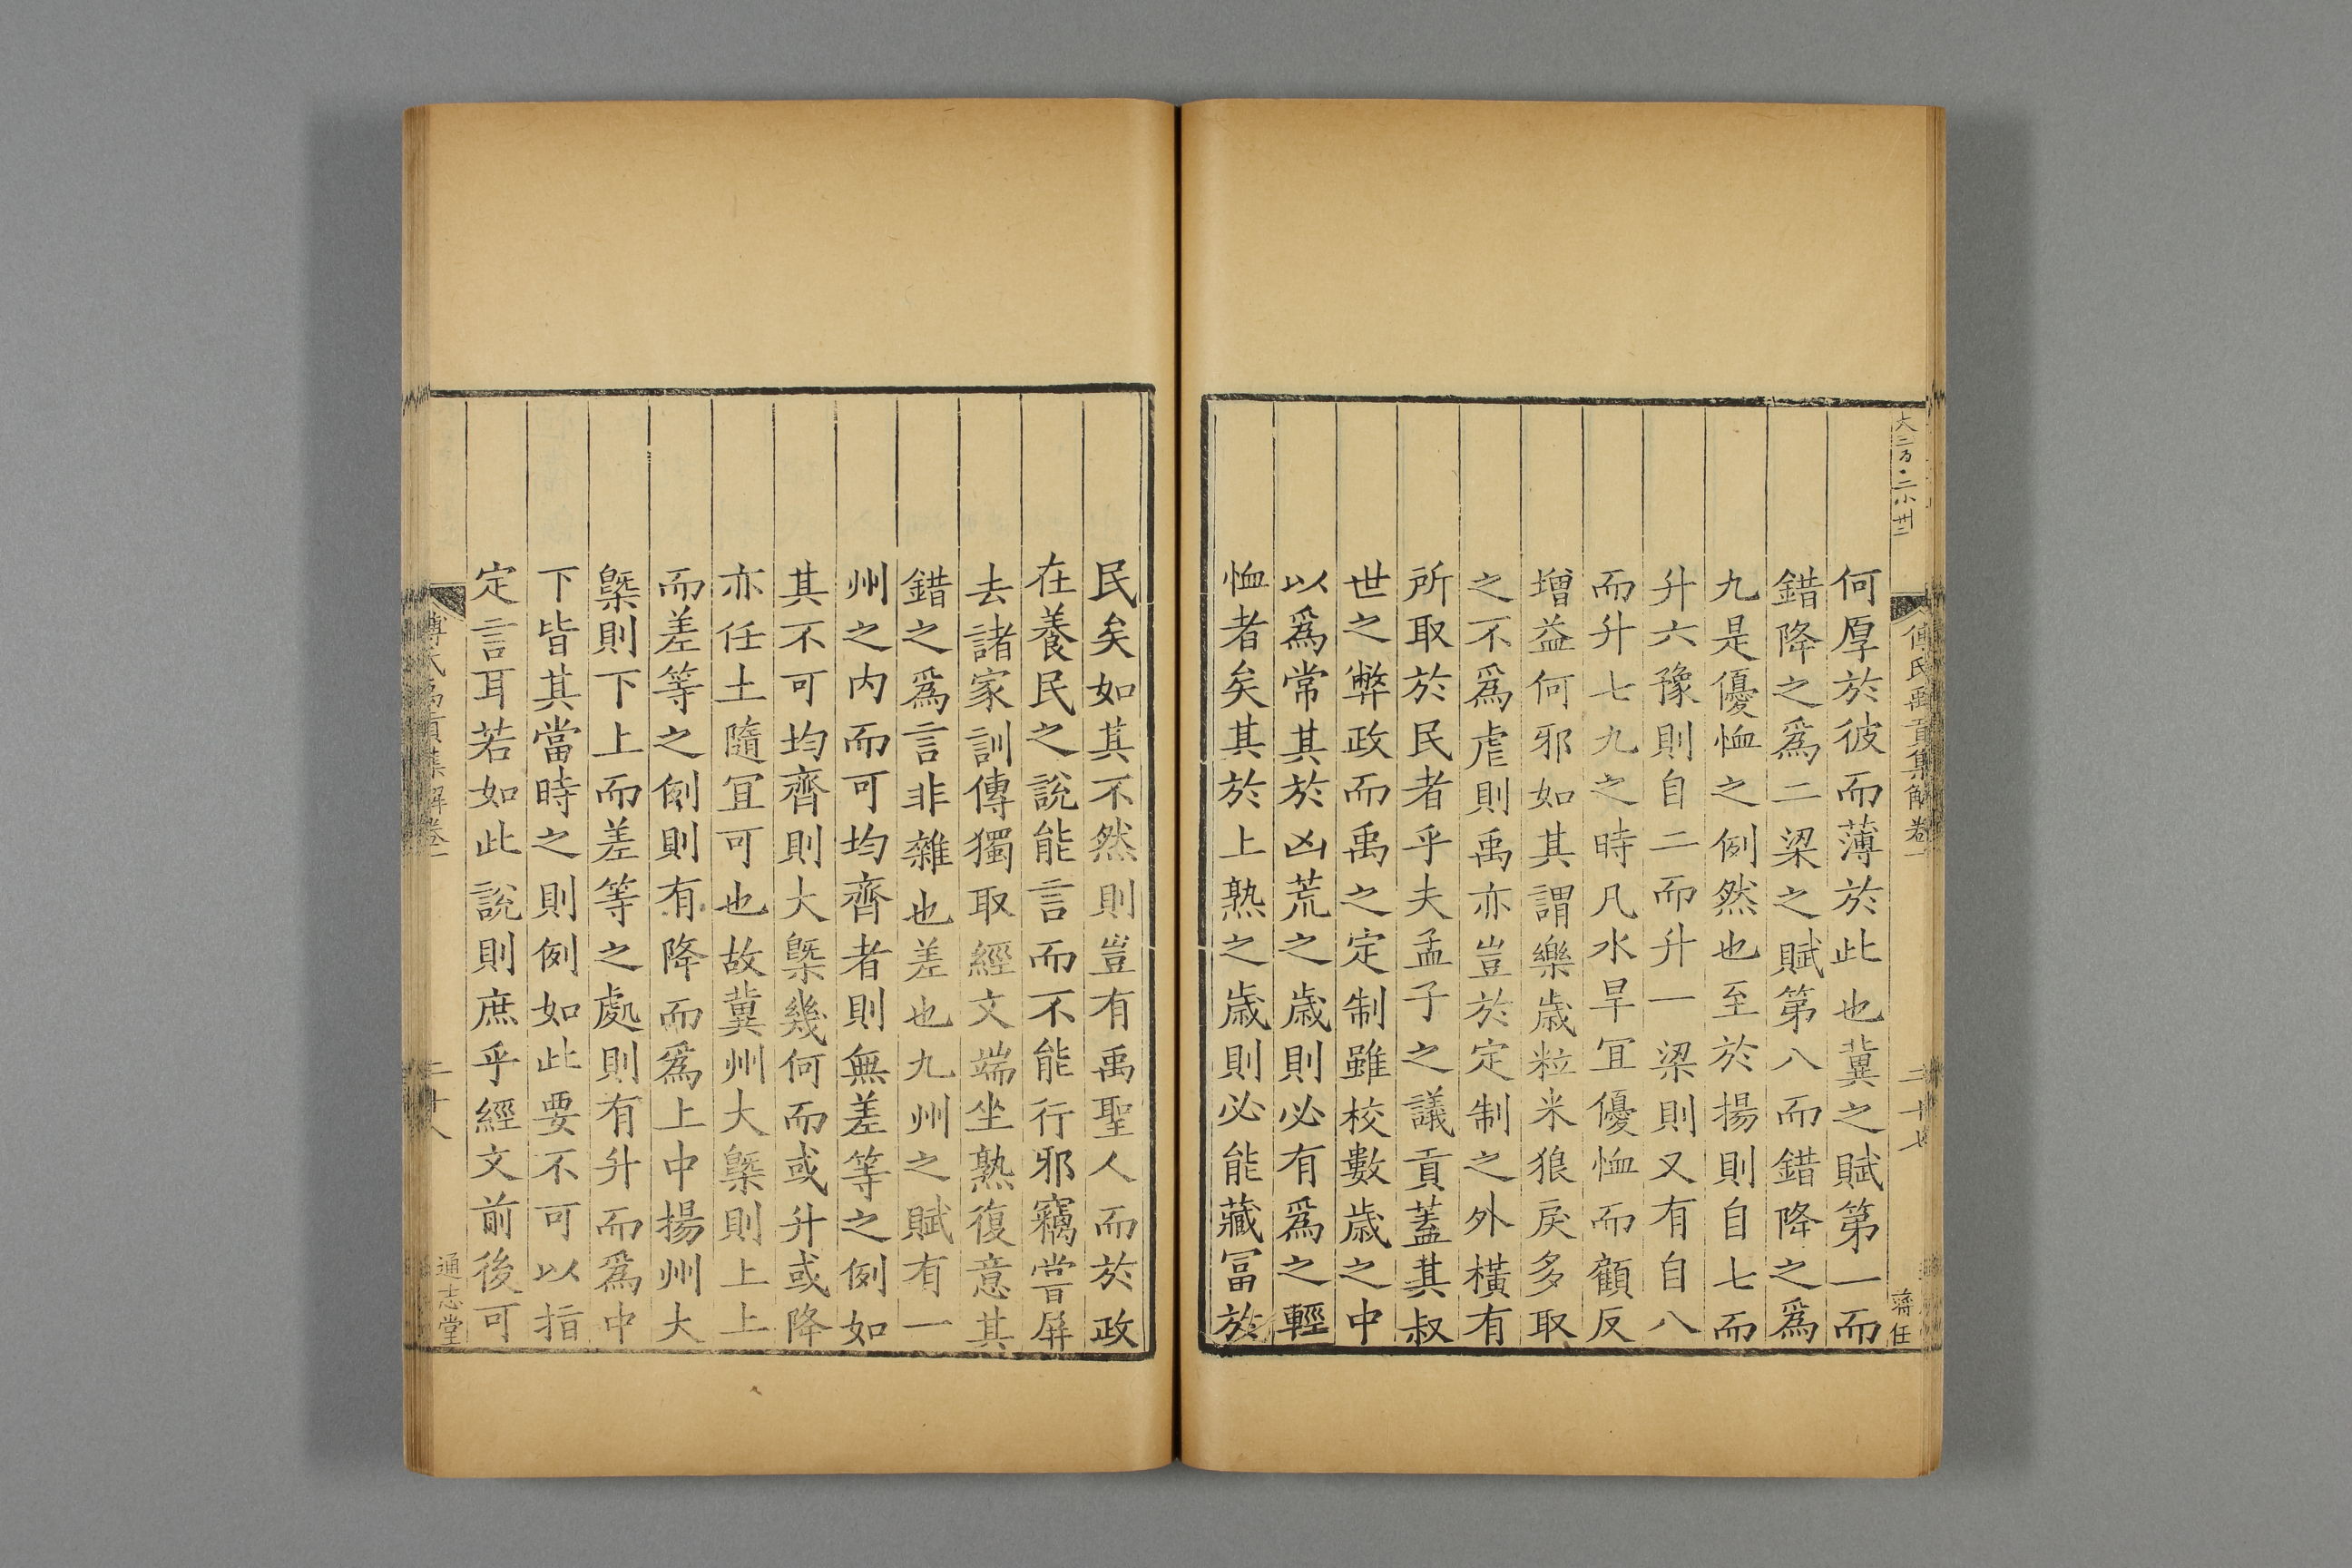 大二百·二小卅二
傅氏禹貢集解卷一
二十七
蔣任
何厚於彼而薄於此也冀之賦第一而
錯降之爲二梁之賦第八而錯降之爲
九是優恤之例然也至於揚則自七而
升六豫則自二而升一梁則又有自八
而升七九之時凡水旱冝優恤而顧反
增益何邪如其謂樂歲粒米狼戾多取
之不爲虐則禹亦豈於定制之外橫有
所取於民者乎夫孟子之議貢蓋其叔
世之弊政而禹之定制雖校數歲之中
以爲常其於凶荒之歲則必有爲之輕
恤者矣其於上熟之歲則必能藏冨於
民矣如其不然則豈有禹聖人而於政
在養民之說能言而不能行邪竊嘗屏
去諸家訓傳獨取經文端坐熟復意其
錯之爲言非雜也差也九州之賦有一
州之内而可均齊者則無差等之例如
其不可均齊則大槩幾何而或升或降
亦任土隨冝可也故冀州大槩則上上
而差等之例則有降而爲上中揚州大
槩則下上而差等之處則有升而爲中
下皆其當時之則例如此要不可以指
定言耳若如此說則庶乎經文前後可
傅氏禹貢集解卷一
二十八
通志堂